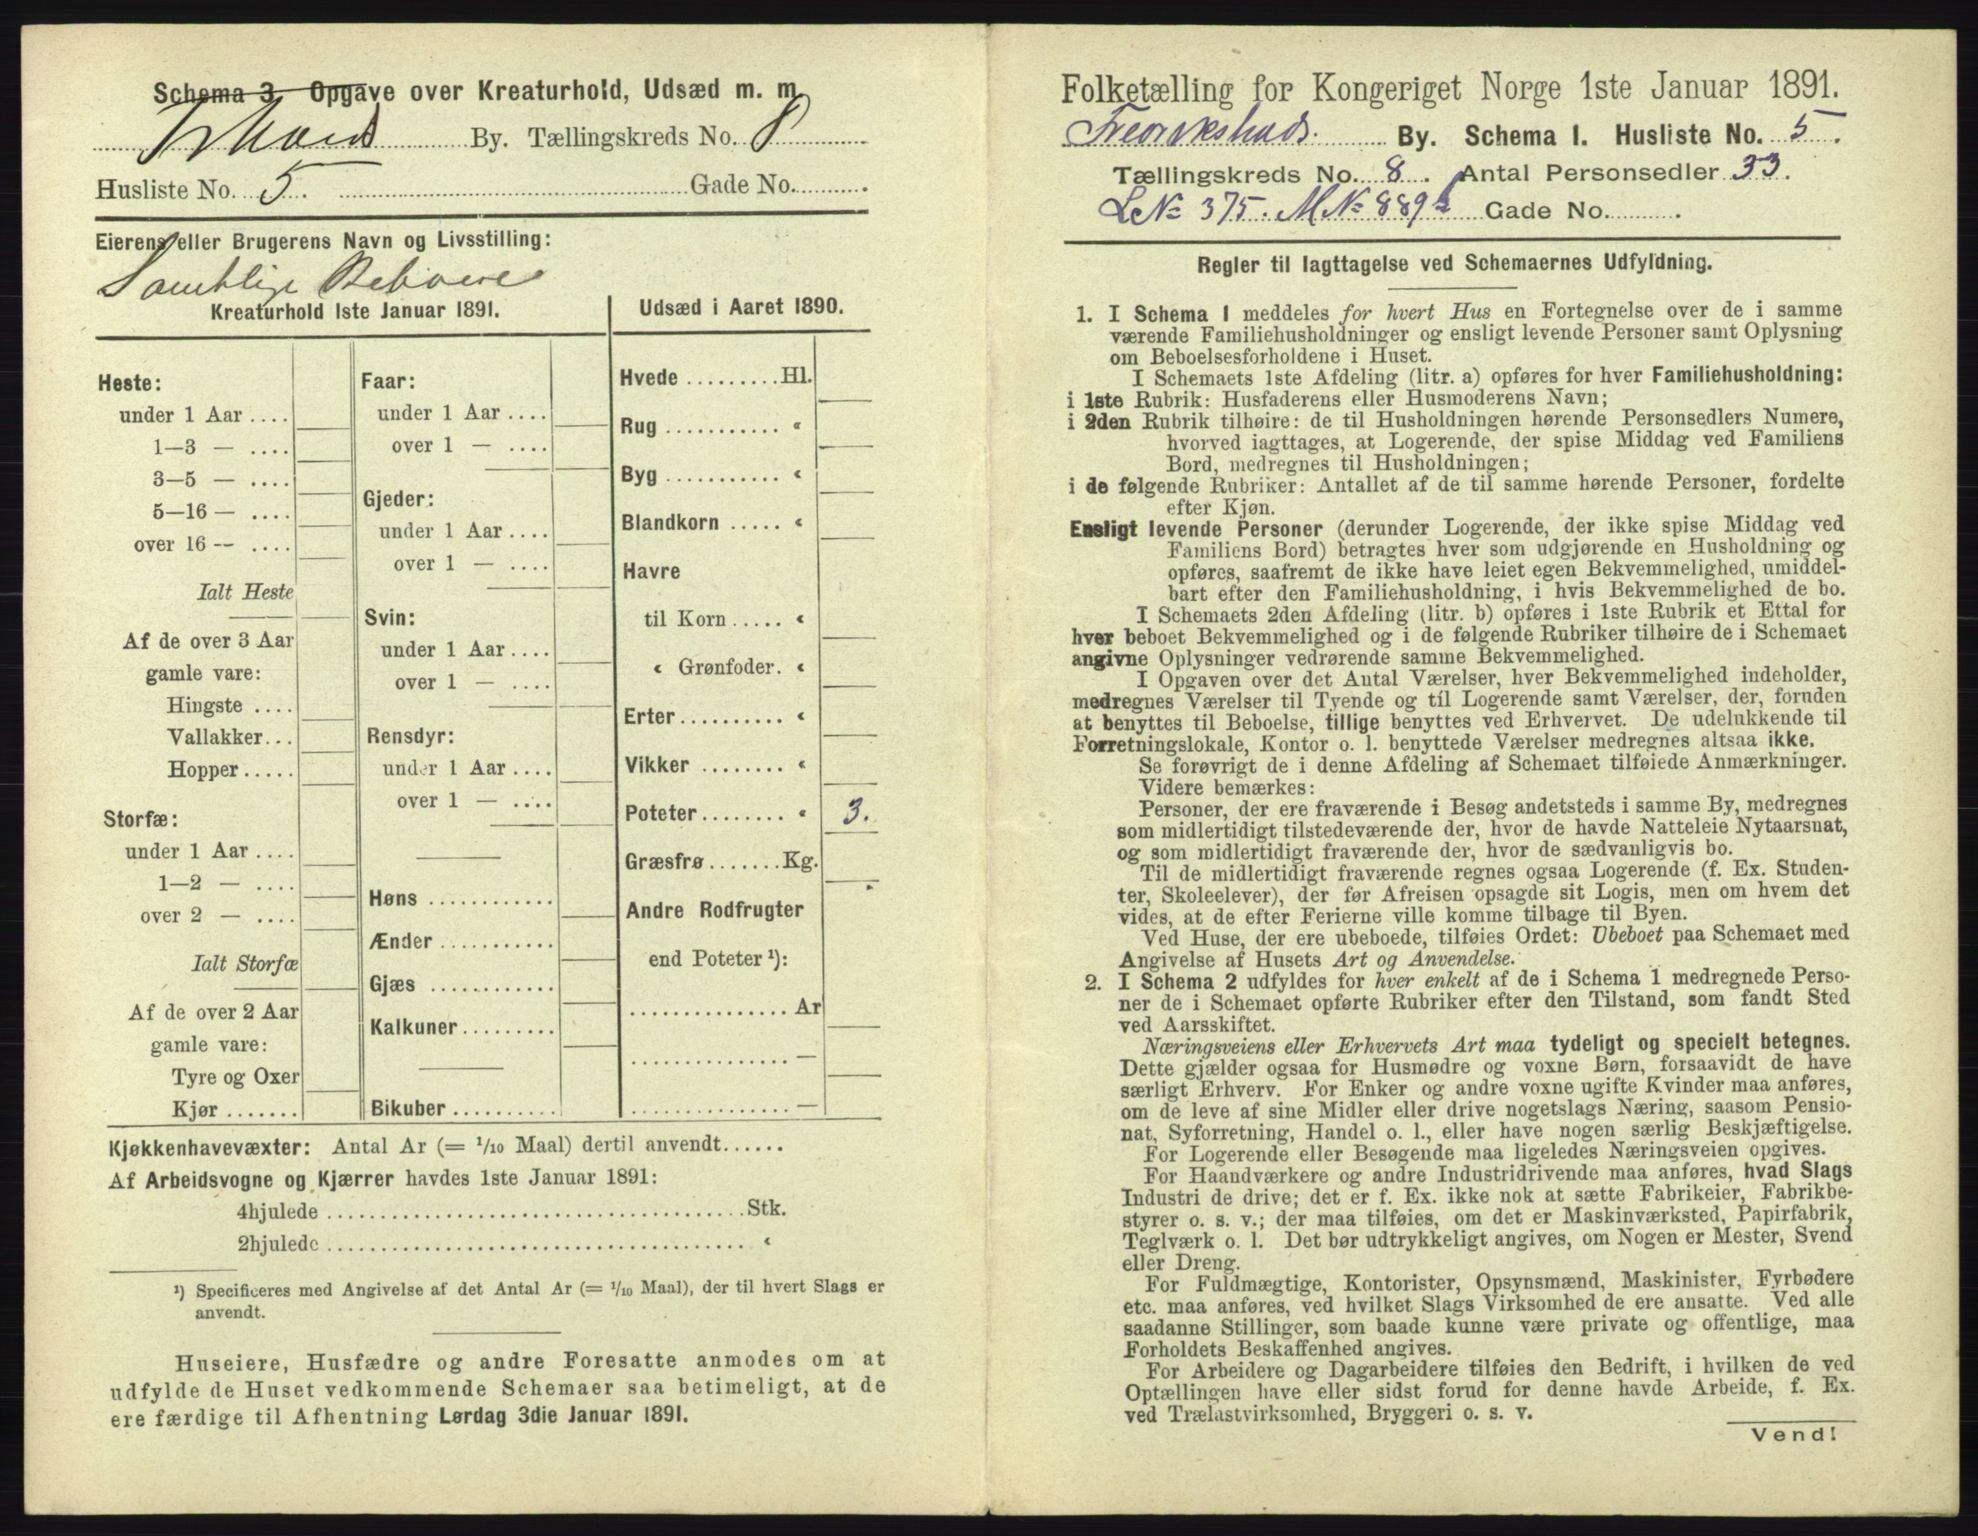 Schema 3. Opgave over Kreaturhold, Udsæd m. m.
By. Tællingskreds No. 8
Husliste No. 5. Gade No.
Eierens eller Brugerens Navn og Livsstilling:
Samtlige Beboere
Kreaturhold 1ste Januar 1891.
Heste:
under 1 Aar ....
1—3 — ....
3—5 — ....
5—16 — ....
over 16 — ....
Ialt Heste
Af de over 3 Aar
gamle vare:
Hingste ....
Vallakker...
Hopper.....
Storfæ:
under 1 Aar ....
1—2 — ....
over 2 — ....
Ialt Storfæ
Af de over 2 Aar
gamle vare:
Tyre og Oxer
Kjør .......
Faar:
under 1 Aar ....
over 1 — ....
Gjeder:
under 1 Aar ....
over 1 — ....
Svin:
under 1 Aar ....
over 1 — ....
Rensdyr:
under 1 Aar ....
over 1 — ....
Høns ............
Ænder ...........
Gjæs ............
Kalkuner.........
Bikuber ..........
Udsæd i Aaret 1890.
Hvede .........Hl.
Rug ........... «
Byg ........... «
Blandkorn ..... «
Havre
til Korn ..... «
« Grønfoder. «
Erter.......... «
Vikker ........ «
Poteter........ « 3.
Græsfrø .......Kg.
Andre Rodfrugter
end Poteter ¹):
............... Ar
............... —
............... —
Kjøkkenhavevæxter: Antal Ar (= 1/10 Maal) dertil anvendt......
Af Arbeidsvogne og Kjærrer havdes 1ste Januar 1891:
4hjulede ........................................Stk.
2hjulede ........................................ «
¹) Specificeres med Angivelse af det Antal Ar (= 1/10 Maal), der til hvert Slags er
anvendt.
Huseiere, Husfædre og andre Foresatte anmodes om at
udfylde de Huset vedkommende Schemaer saa betimeligt, at de
ere færdige til Afhentning Lørdag 3die Januar 1891.
Folketælling for Kongeriget Norge 1ste Januar 1891.
Fredrikshald. By. Schema I. Husliste No. 5.
Tællingskreds No. 8. Antal Personsedler 33.
LNo 375. MNo 889b Gade No.
Regler til Iagttagelse ved Schemaernes Udfyldning.
1. I Schema 1 meddeles for hvert Hus en Fortegnelse over de i samme
værende Familiehusholdninger og ensligt levende Personer samt Oplysning
om Beboelsesforholdene i Huset.
I Schemaets 1ste Afdeling (litr. a) opføres for hver Familiehusholdning:
i 1ste Rubrik: Husfaderens eller Husmoderens Navn;
i 2den Rubrik tilhøire: de til Husholdningen hørende Personsedlers Numere,
hvorved iagttages, at Logerende, der spise Middag ved Familiens
Bord, medregnes til Husholdningen;
i de følgende Rubriker: Antallet af de til samme hørende Personer, fordelte
efter Kjøn.
Ensligt levende Personer (derunder Logerende, der ikke spise Middag ved
Familiens Bord) betragtes hver som udgjørende en Husholdning og
opføres, saafremt de ikke have leiet egen Bekvemmelighed, umiddel-
bart efter den Familiehusholdning, i hvis Bekvemmelighed de bo.
I Schemaets 2den Afdeling (litr. b) opføres i 1ste Rubrik et Ettal for
hver beboet Bekvemmelighed og i de følgende Rubriker tilhøire de i Schemaet
angivne Oplysninger vedrørende samme Bekvemmelighed.
I Opgaven over det Antal Værelser, hver Bekvemmelighed indeholder,
medregnes Værelser til Tyende og til Logerende samt Værelser, der, foruden
at benyttes til Beboelse, tillige benyttes ved Erhvervet. De udelukkende til
Forretningslokale, Kontor o. l. benyttede Værelser medregnes altsaa ikke.
Se forøvrigt de i denne Afdeling af Schemaet tilføiede Anmærkninger.
Videre bemærkes:
Personer, der ere fraværende i Besøg andetsteds i samme By, medregnes
som midlertidigt tilstedeværende der, hvor de havde Natteleie Nytaarsnat,
og som midlertidigt fraværende der, hvor de sædvanligvis bo.
Til de midlertidigt fraværende regnes ogsaa Logerende (f. Ex. Studen-
ter, Skoleelever), der før Afreisen opsagde sit Logis, men om hvem det
vides, at de efter Ferierne ville komme tilbage til Byen.
Ved Huse, der ere ubeboede, tilføies Ordet: Ubeboet paa Schemaet med
Angivelse af Husets Art og Anvendelse.
2. I Schema 2 udfyldes for hver enkelt af de i Schema 1 medregnede Perso-
ner de i Schemaet opførte Rubriker efter den Tilstand, som fandt Sted
ved Aarsskiftet.
Næringsveiens eller Erhvervets Art maa tydeligt og specielt betegnes.
Dette gjælder ogsaa for Husmødre og voxne Børn, forsaavidt de have
særligt Erhverv. For Enker og andre voxne ugifte Kvinder maa anføres,
om de leve af sine Midler eller drive nogetslags Næring, saasom Pensio-
nat, Syforretning, Handel o. l., eller have nogen særlig Beskjæftigelse.
For Logerende eller Besøgende maa ligeledes Næringsveien opgives.
For Haandværkere og andre Industridrivende maa anføres, hvad Slags
Industri de drive; det er f. Ex. ikke nok at sætte Fabrikeier, Fabrikbe-
styrer o. s. v.; der maa tilføies, om det er Maskinværksted, Papirfabrik,
Teglværk o. l. Det bør udtrykkeligt angives, om Nogen er Mester, Svend
eller Dreng.
For Fuldmægtige, Kontorister, Opsynsmænd, Maskinister, Fyrbødere
etc. maa anføres, ved hvilket Slags Virksomhed de ere ansatte. Ved alle
saadanne Stillinger, som baade kunne være private og offentlige, maa
Forholdets Beskaffenhed angives.
For Arbeidere og Dagarbeidere tilføies den Bedrift, i hvilken de ved
Optællingen have eller sidst forud for denne havde Arbeide, f. Ex.
ved Trælastvirksomhed, Bryggeri o. s. v.
Vend!